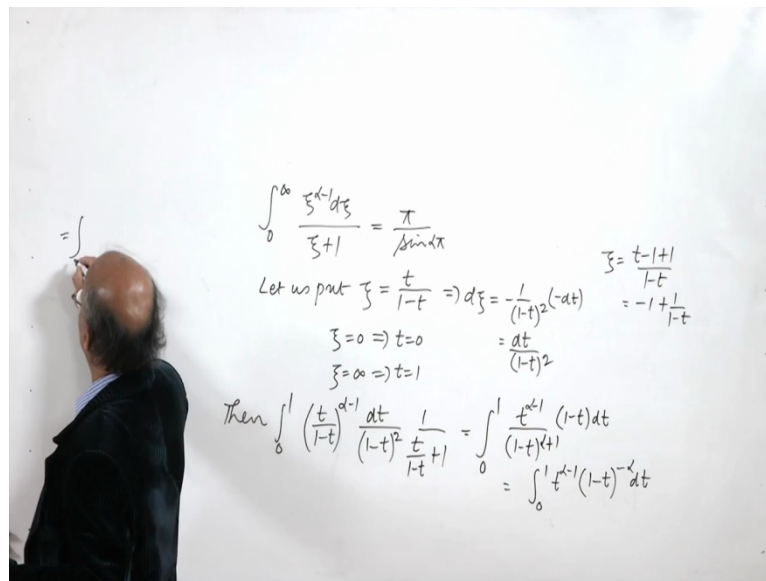 ∫₀^∞ ξ^(α-1)dξ / (ξ+1) = π / sinαπ
Let us put ξ = t/(1-t) => dξ = -1/(1-t)² (-dt)
ξ = (t-1+1)/(1-t)
= -1 + 1/(1-t)
ξ=0 => t=0
= dt/(1-t)²
ξ=∞ => t=1
Then ∫₀^1 (t/(1-t))^(α-1) dt/(1-t)² 1/(t/(1-t) +1) = ∫₀^1 t^(α-1)/(1-t)^(α+1) (1-t)dt
= ∫₀^1 t^(α-1) (1-t)^(-α) dt
= ∫